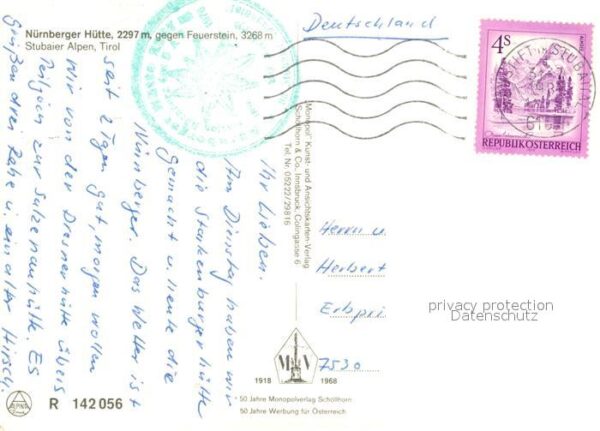 Nürnberger Hütte, 2297 m, gegen Feuerstein, 3268 m
Stubaier Alpen, Tirol
Deutschland
4S
REPUBLIK ÖSTERREICH
Ihr Lieben.
Am Dienstag haben wir
die Starkenburgerhütte
gemacht u. heute die
Nürnberger. Das Wetter ist
seit 2 Tgen gut, morgen wollen
wir von der Dresnerhütte übers
Peiljoch zur Sulzenauhütte. Es
Grüßen drei Rehe u. ein alter Hirsch.
"Monopol" Kunst- und Ansichtskarten-Verlag
Schöllhorn & Co., Innsbruck, Colingasse 6
Tel. Nr. 05222/29816
Herrn u
Herbert
Erbpri
7530
privacy protection
Datenschutz
MV
1918 1968
50 Jahre Monopolverlag Schöllhorn
50 Jahre Werbung für Österreich
R 142 056